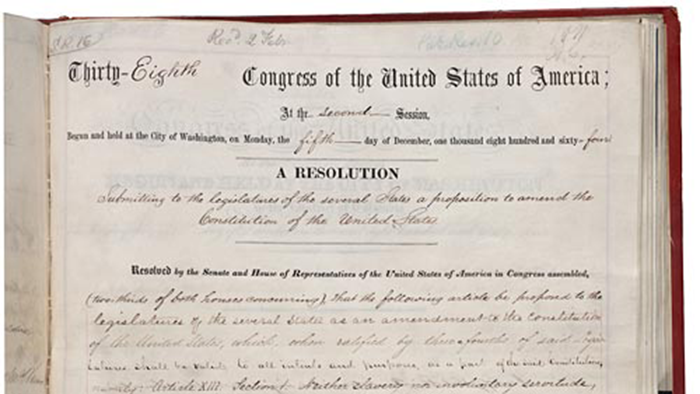 S.R. 16 Recd. 2 Feby
Thirty-Eighth Congress of the United States of America;
At the second Session,
Begun and held at the City of Washington, on Monday, the fifth day of December, one thousand eight hundred and sixty-four
A RESOLUTION
Submitting to the legislatures of the several States a proposition to amend the
Constitution of the United States
Resolved by the Senate and House of Representatives of the United States of America in Congress assembled,
(two-thirds of both houses concurring), That the following article be proposed to the
legislatures of the several States as an amendment to the Constitution
of the United States, which, when ratified by three-fourths of said Legis-
latures shall be valid, to all intents and purposes, as a part of the said Constitution,
namely: Article XIII. Section 1. Neither slavery nor involuntary servitude,